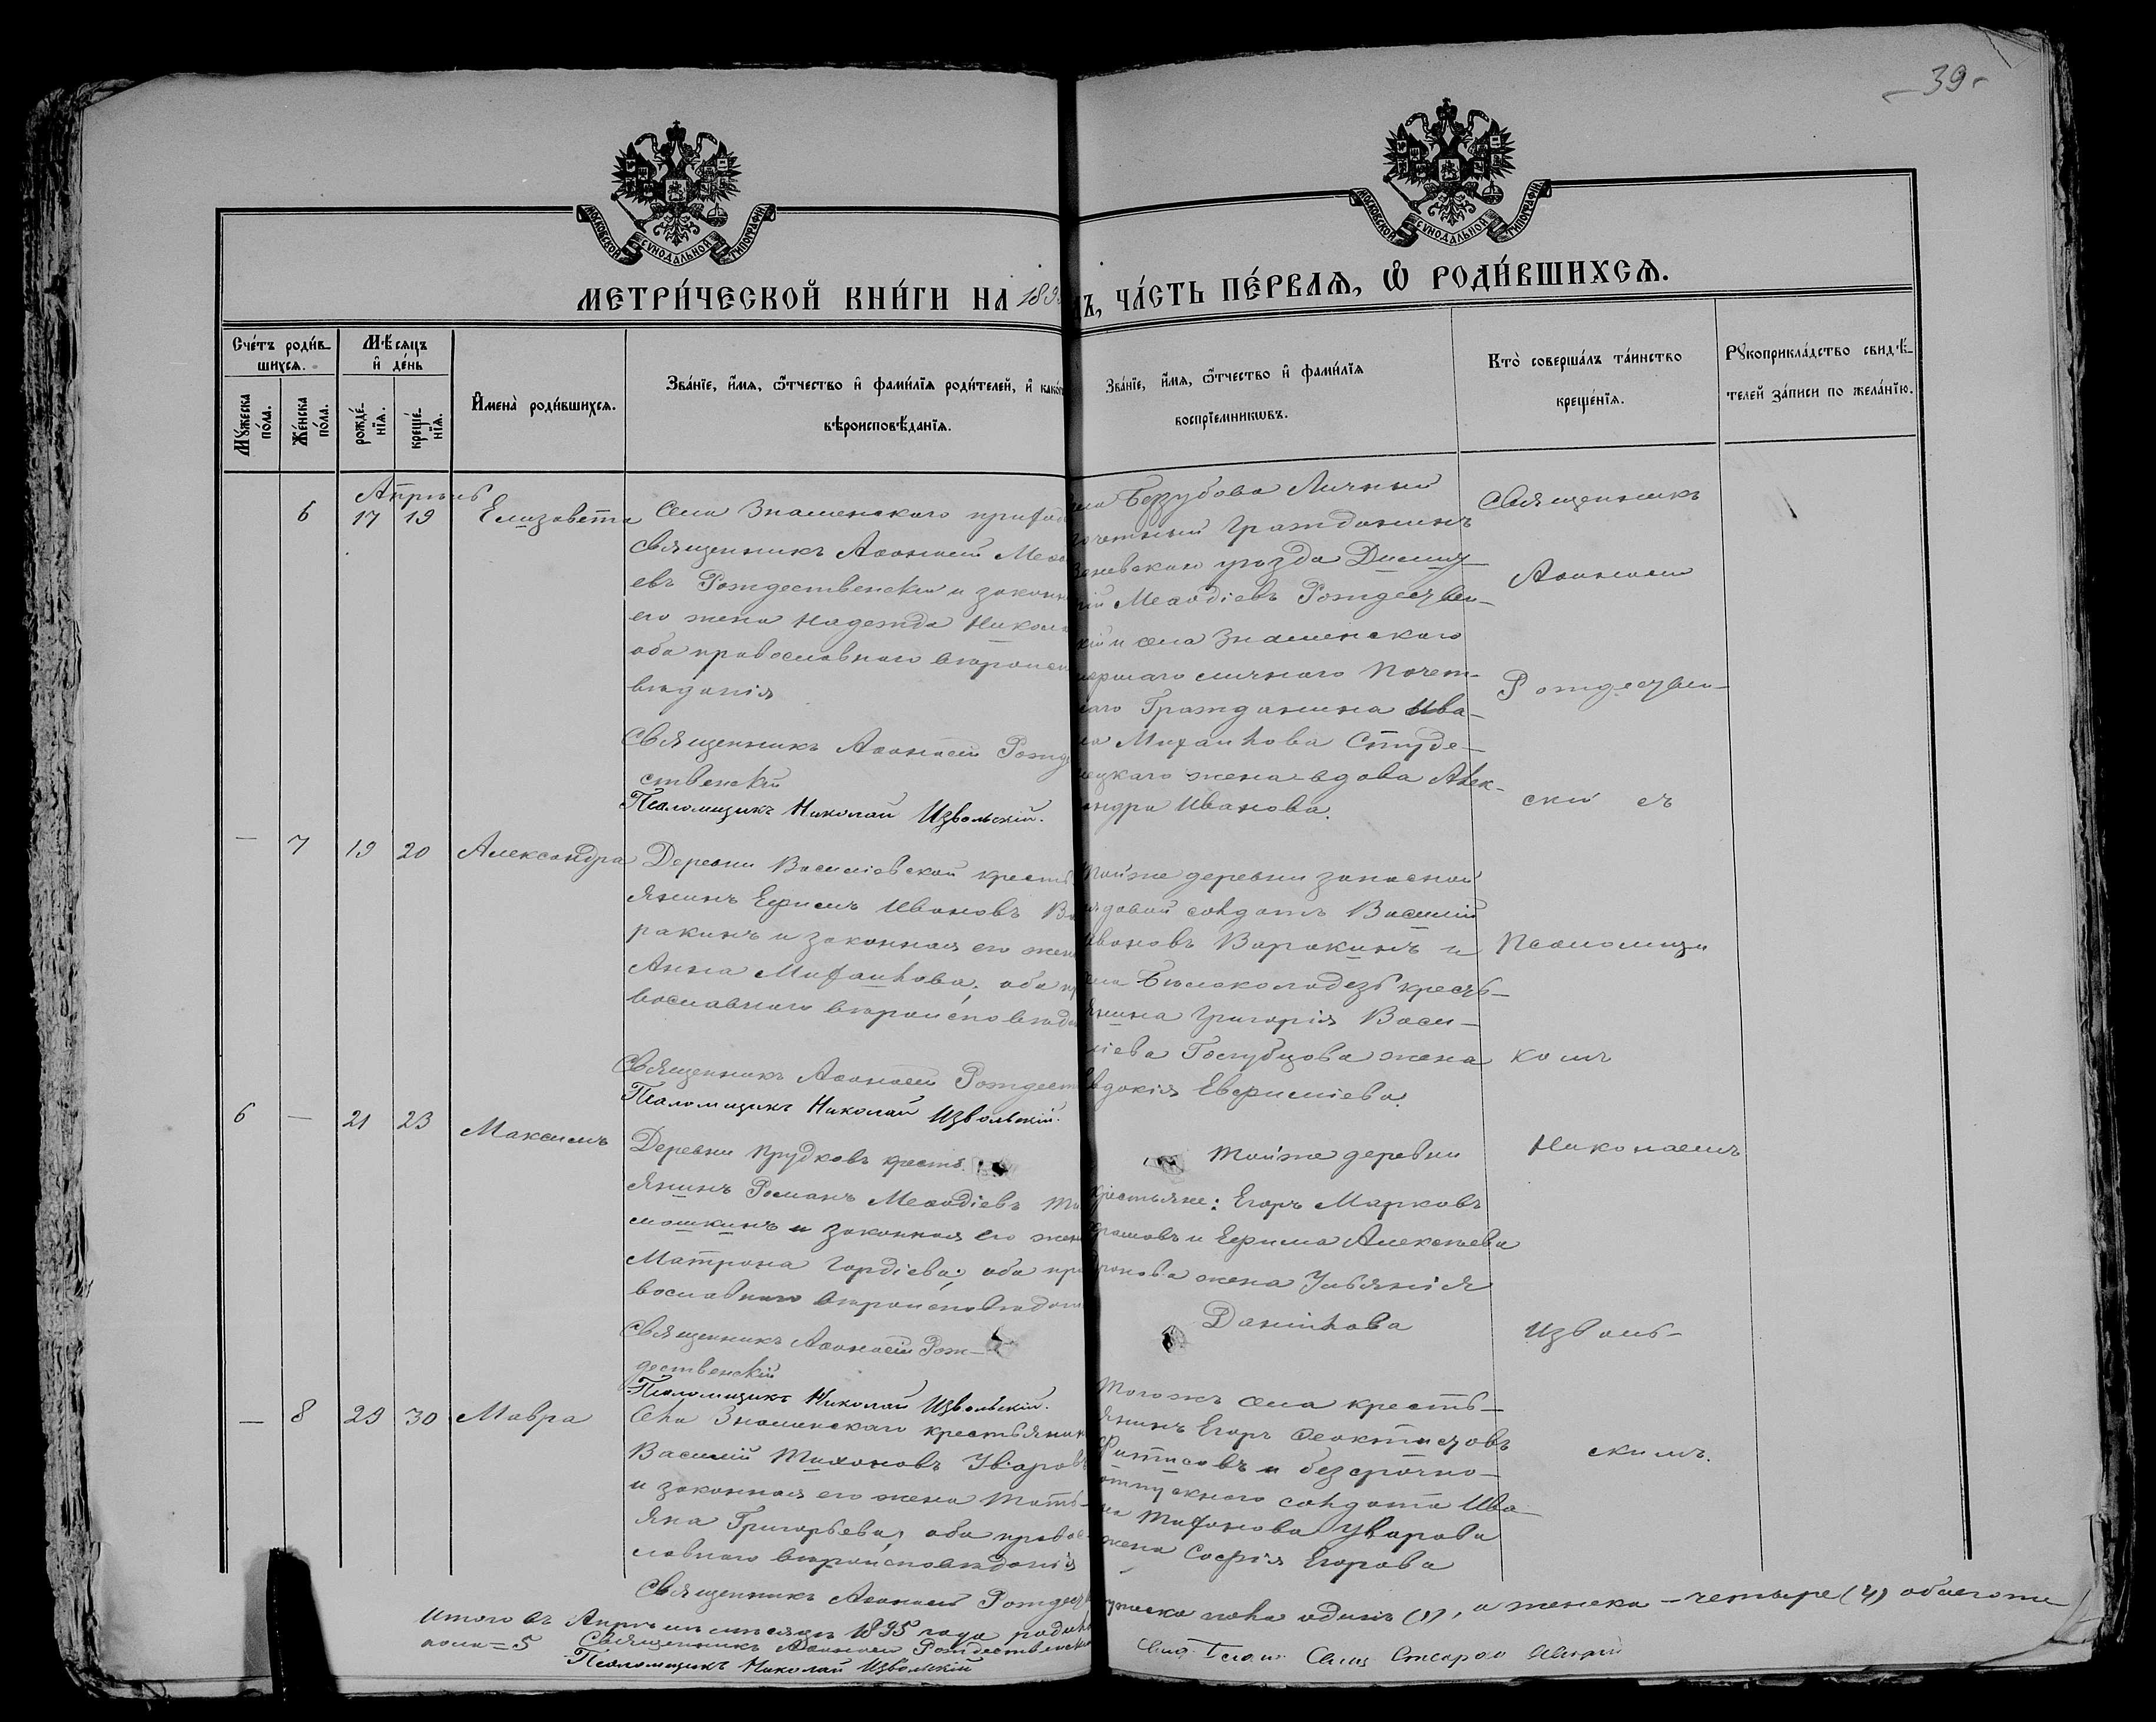 39
МОСКОВСКОЙ СУНОДАЛЬНОЙ ТИПОГРАФІИ
МОСКОВСКОЙ СУНОДАЛЬНОЙ ТИПОГРАФІИ
МЕТРИ́ЧЕСКОЙ КНИ́ГИ НА 189
ЧА́СТЬ ПЕ́РВАѦ, Ѽ РОДИ́ВШИХСѦ.
Сче́тъ роди́в-
шихсѧ.
Мꙋжеска по́ла.
Же́нска по́ла.
Мѣ́сѧцъ
и҆ де́нь
рожде́-
нїѧ.
креще́-
нїѧ.
И҆мена̀ роди́вшихсѧ.
Зва́нїе, и҆́мѧ, ѻ҆́тчество и҆ фами́лїѧ роди́телей, и҆ како́
вѣроисповѣ́данїѧ.
Зва́нїе, и҆́мѧ, ѻ҆́тчество и҆ фами́лїѧ
воспрїе́мникѡвъ.
Кто̀ соверша́лъ та́инство
креще́нїѧ.
Рꙋкоприкла́дство свидѣ́-
телей за́писи по жела́нїю.
Апрѣль
6 17 19 Елизавета
Села Знаменскаго приход
священникъ Аѳанасій Меѳо
евъ Рождественскій и законн
его жена Надежда Никола
оба православнаго вѣроиспо
вѣданія
Священникъ Аѳанасій Рожде
ственскій
Псаломщикъ Николай Извольскій.
ела Беззубова Личный
очетный Гражданинъ
уѣзда Димит
рій Меѳодіевъ Рождествен-
кій и села Знаменскаго
мершаго личнаго Почет-
наго Гражданина Ива-
на Михайлова Студе-
нецкаго жена-вдова Алек-
андра Иванова.
Священникъ
Аѳанасій
Рождествен-
скій съ
— 7 19 20 Александра
Деревни Василіевской кресть
янинъ Ефимъ Ивановъ Ва
ракинъ и законная его жена
Анна Михайлова; оба пр
вославнаго вѣроисповѣда
Священникъ Аѳанасій Рождеств
Псаломщикъ Николай Извольскій.
Той же деревни запасной
рядовой солдатъ Василій
Ивановъ Варакинъ и
села Бѣлоколодезь кресть-
янина Григорія Васи-
ліева Голубцова жена
Евдокія Евфиміева.
Псаломщи
комъ
6 — 21 23 Максимъ
Деревни Прудковъ кресть
янинъ Романъ Меѳодіевъ Ти
мошкинъ и законная его жена
Матрона Гордіева; оба пра
вославнаго вѣроисповѣдан
Священникъ Аѳанасій Рож-
дественскій
Псаломщикъ Николай Извольскій.
Той же деревни
крестьяне: Егоръ Марковъ
и Ефима Алексѣева
жена Ульянія
Данилова
Николаемъ
Изволь-
— 8 29 30 Мавра
Села Знаменскаго крестьянин
Василій Тихоновъ Уваровъ
и законная его жена Тать-
яна Григорьева; оба правос
лавнаго вѣроисповѣданія
Священникъ Аѳанасій Рождест
Тогожъ села кресть-
янинъ Егоръ Ѳеоктистовъ
Фитисовъ и безсрочно-
отпускнаго солдата Ива-
на Тихонова Уварова
жена Софія Егорова
скимъ.
Итого въ Апрѣлѣ мѣсяцѣ 1895 года родило
мужеска пола одинъ (1), а женска - четыре (4) обоего же
пола = 5
Священникъ Аѳанасій Рождественскій
Псаломщикъ Николай Извольскій